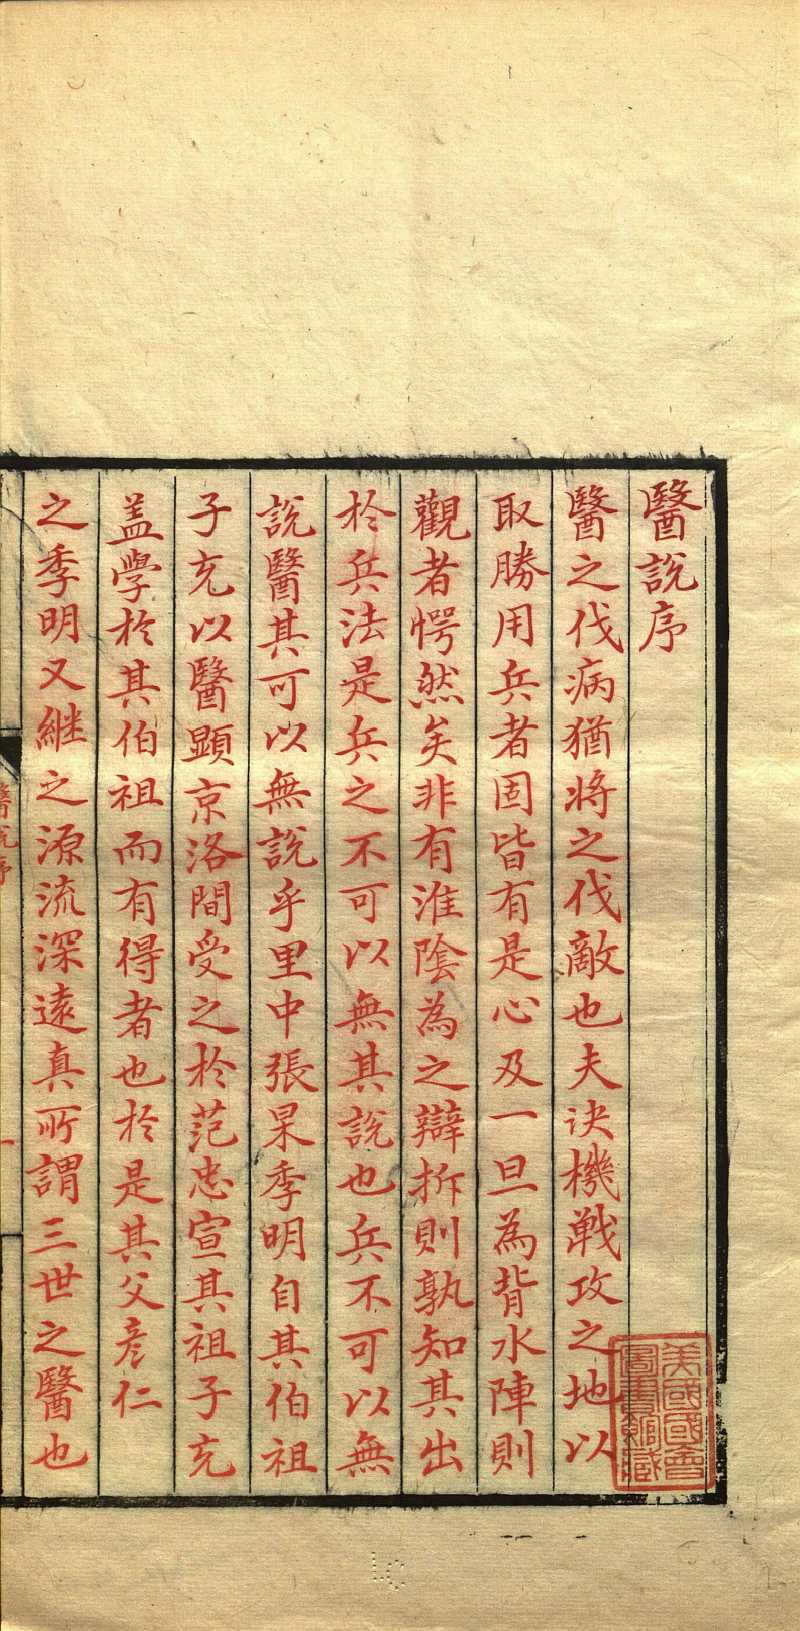 醫說序
醫之伐病猶將之伐敵也夫决機戰攻之地以
取勝用兵者固皆有是心及一旦為背水陣則
觀者愕然矣非有淮陰為之辯拆則孰知其出
於兵法是兵之不可以無其說也兵不可以無
說醫其可以無說乎里中張杲季明自其伯祖
子充以醫顯京洛間受之於范忠宣其祖子充
盖学於其伯祖而有得者也於是其父彦仁
之季明又継之源流深遠真所謂三世之醫也
醫說序
一
美國國會
圖書館藏